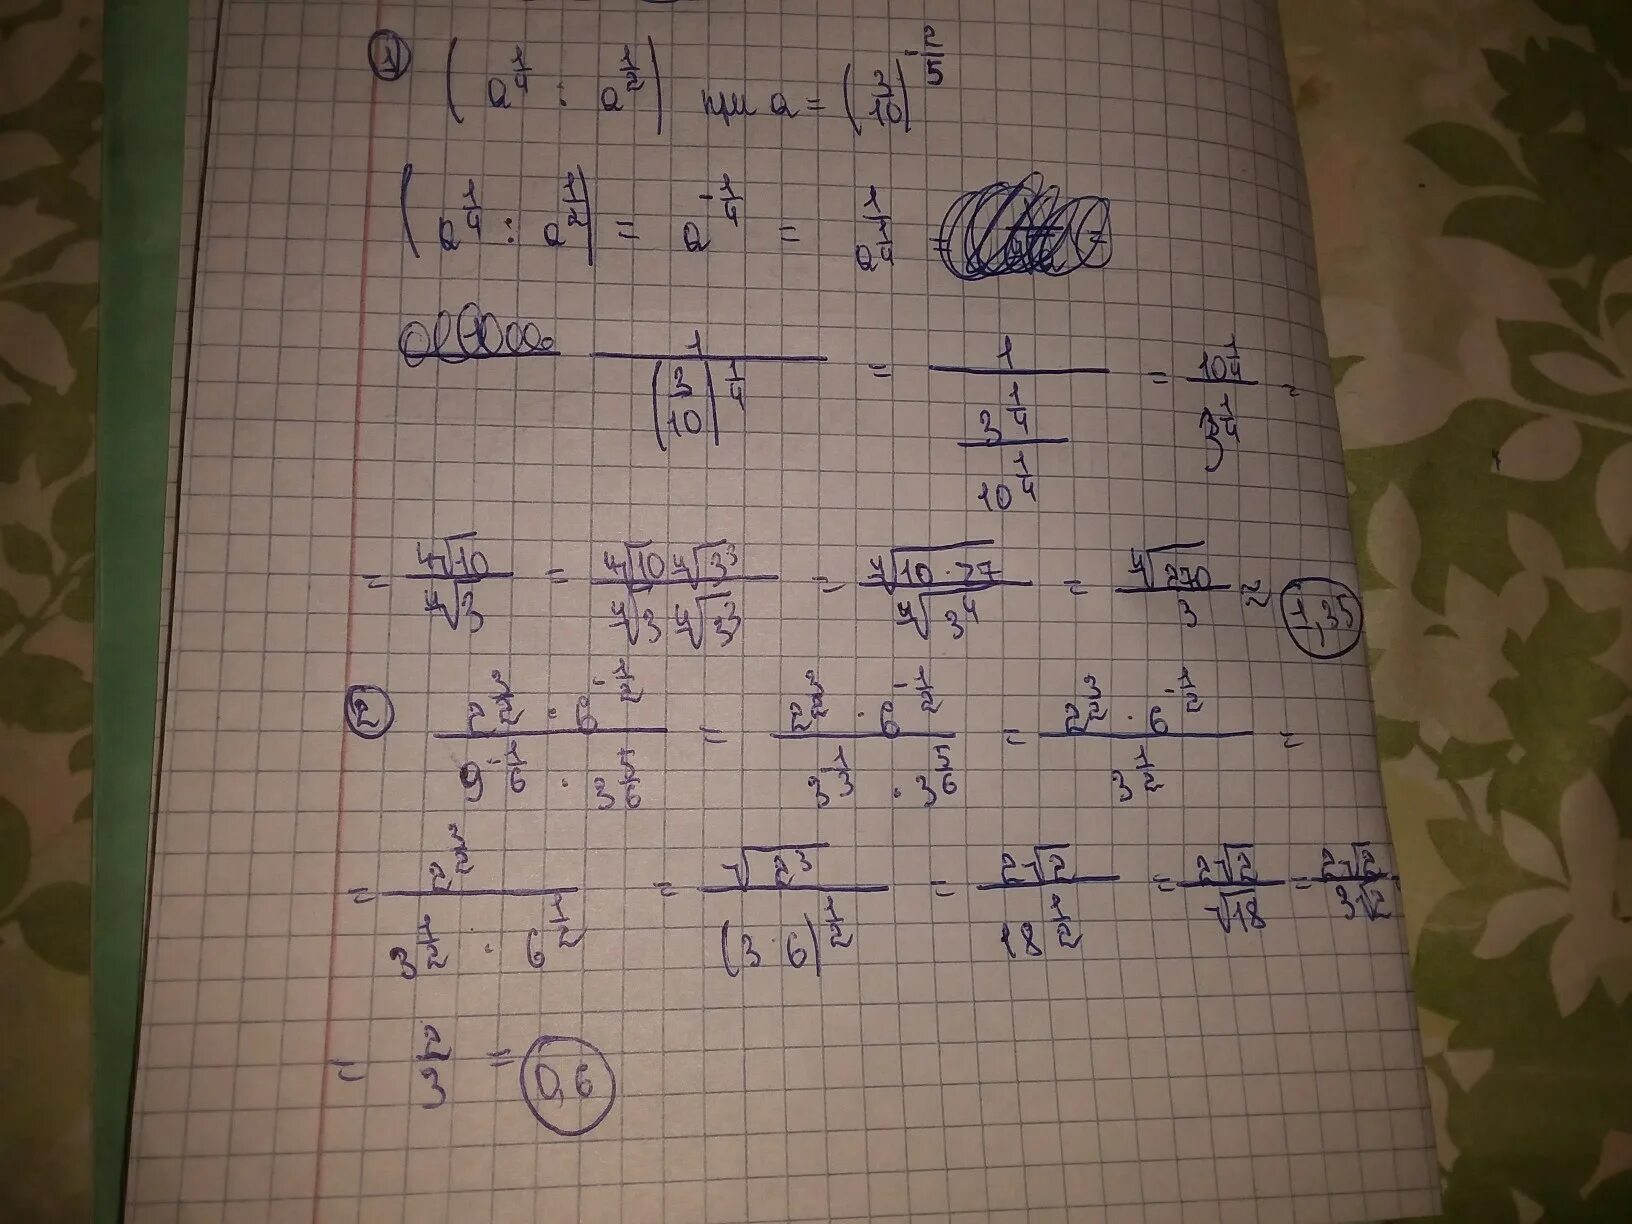 1) (a^{1/4} : a^{1/2}) при a = (3/10)^{-2/5}
(a^{1/4} : a^{1/2}) = a^{-1/4} = 1/a^{1/4} =
1/(3/10)^{1/4} = 1/(3^{1/4}/10^{1/4}) = 10^{1/4}/3^{1/4} =
= ∜10/∜3 = ∜10 ∜3³/∜3 ∜3³ = ∜(10·27)/∜3⁴ = ∜270/3 ≈ 1,35
2) 2^{3/2} · 6^{-1/2}/9^{-1/6} · 3^{5/6} = 2^{3/2} · 6^{-1/2}/3^{-1/3} · 3^{5/6} = 2^{3/2} · 6^{-1/2}/3^{1/2} =
= 2^{3/2}/3^{1/2} · 6^{1/2} = √2³/(3·6)^{1/2} = 2√2/18^{1/2} = 2√2/√18 = 2√2/3√2
= 2/3 = 0,6